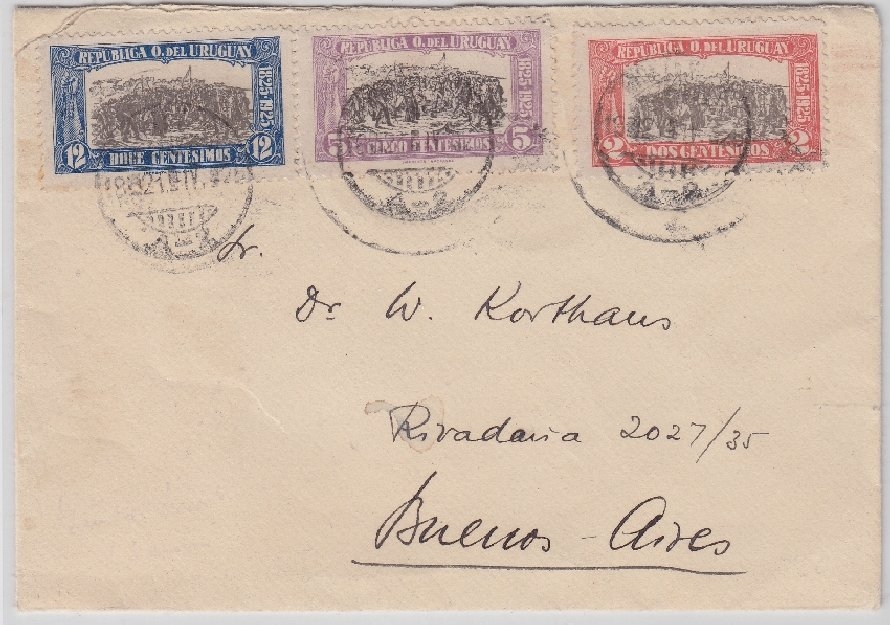 REPUBLICA O. DEL URUGUAY
1825-1925
12 DOCE CENTESIMOS 12
REPUBLICA O. DEL URUGUAY
1825-1925
5 CINCO CENTESIMOS 5
REPUBLICA O. DEL URUGUAY
1825-1925
2 DOS CENTESIMOS 2
A-2
A-2
A-2
Sr.
Dr W. Korthaus
Rivadavia 2027/35
Buenos-Aires